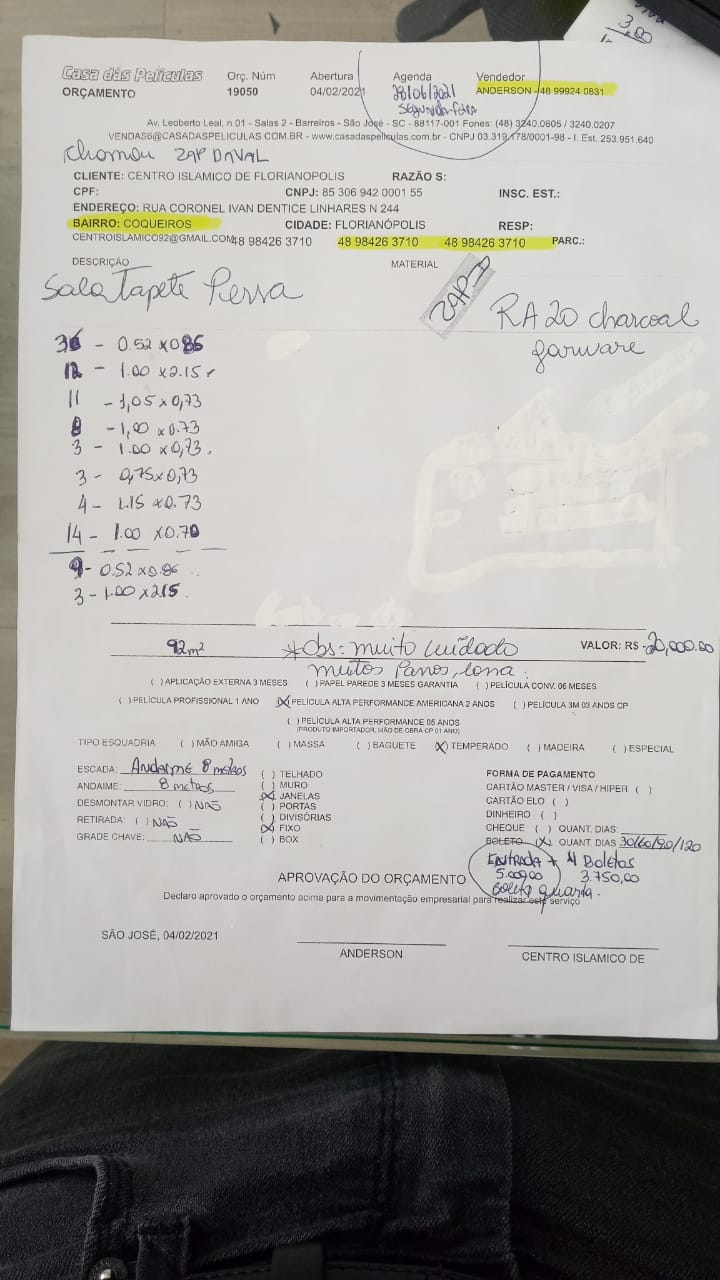 3,00
Casa das Películas Orç. Núm Abertura Agenda Vendedor
ORÇAMENTO 19050 04/02/2021 28/06/2021 ANDERSON - 48 99924 0831
Segunda-feira
Av. Leoberto Leal, n 01 - Salas 2 - Barreiros - São José - SC - 88117-001 Fones: (48) 3240.0805 / 3240.0207
VENDAS6@CASADASPELICULAS.COM.BR - www.casadaspeliculas.com.br - CNPJ 03.319.178/0001-98 - I. Est. 253.951.640
chamou ZAP
CLIENTE: CENTRO ISLAMICO DE FLORIANOPOLIS RAZÃO S:
CPF: CNPJ: 85 306 942 0001 55 INSC. EST.:
ENDEREÇO: RUA CORONEL IVAN DENTICE LINHARES N 244
BAIRRO: COQUEIROS CIDADE: FLORIANÓPOLIS RESP:
CENTROISLAMICO92@GMAIL.COM 48 98426 3710 48 98426 3710 48 98426 3710 PARC.:
DESCRIÇÃO MATERIAL
Sala Tapete Persa ZAP RA 20 charcoal
garware
36 - 0.52 x 0.86
12 - 1.00 x 2.15
11 - 1,05 x 0,73
8 - 1,00 x 0.73
3 - 1.00 x 0,73.
3 - 0,75 x 0,73
4 - 1.15 x 0.73
14 - 1.00 x 0.70
9 - 0.52 x 0.86
3 - 1.00 x 2.15
92m² *Obs= muito cuidado VALOR: R$ 20,000.00
muitos Panos, lona.
( ) APLICAÇÃO EXTERNA 3 MESES ( ) PAPEL PAREDE 3 MESES GARANTIA ( ) PELÍCULA CONV. 06 MESES
( ) PELÍCULA PROFISSIONAL 1 ANO (X) PELÍCULA ALTA PERFORMANCE AMERICANA 2 ANOS ( ) PELÍCULA 3M 03 ANOS CP
( ) PELÍCULA ALTA PERFORMANCE 05 ANOS
(PRODUTO IMPORTADOR, MÃO DE OBRA CP 01 ANO)
TIPO ESQUADRIA ( ) MÃO AMIGA ( ) MASSA ( ) BAGUETE (X) TEMPERADO ( ) MADEIRA ( ) ESPECIAL
ESCADA: Andaime 8 metros ( ) TELHADO FORMA DE PAGAMENTO
ANDAIME: 8 metros ( ) MURO CARTÃO MASTER / VISA / HIPER ( )
DESMONTAR VIDRO: ( ) NÃO (X) JANELAS CARTÃO ELO ( )
RETIRADA: ( ) NÃO ( ) PORTAS DINHEIRO ( )
GRADE CHAVE: NÃO ( ) DIVISÓRIAS CHEQUE ( ) QUANT. DIAS
(X) FIXO BOLETO (X) QUANT. DIAS 30/60/90/120
( ) BOX
ENTRADA + 4 Boletos
5.000,00 3.750,00
boleto quarta.
APROVAÇÃO DO ORÇAMENTO
Declaro aprovado o orçamento acima para a movimentação empresarial para realizar este serviço
SÃO JOSÉ, 04/02/2021
ANDERSON CENTRO ISLAMICO DE